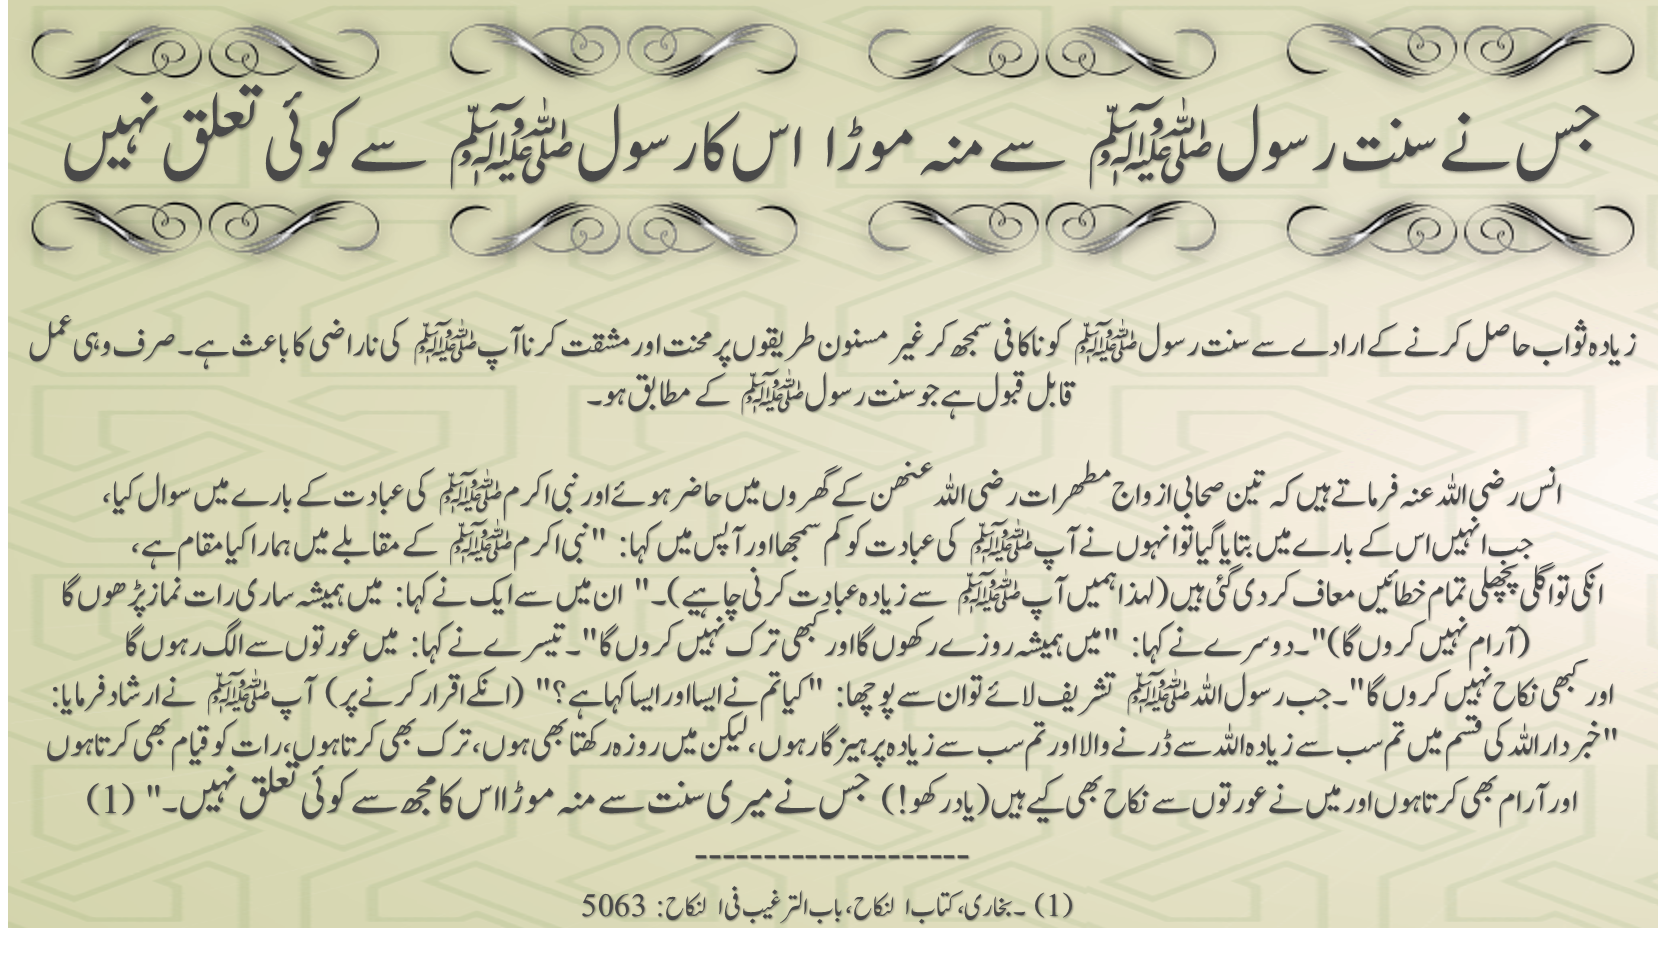 جس نے سنت رسولﷺ سے منہ موڑا اس کا رسولﷺ سے کوئی تعلق نہیں
زیادہ ثواب حاصل کرنے کے ارادے سے سنت رسولﷺ کو ناکافی سمجھ کر غیر مسنون طریقوں پر محنت اور مشقت کرنا آپﷺ کی ناراضی کا باعث ہے۔ صرف وہی عمل
قابل قبول ہے جو سنت رسولﷺ کے مطابق ہو۔
انس رضی اللہ عنہ فرماتے ہیں کہ تین صحابی ازواج مطھرات رضی اللہ عنھن کے گھروں میں حاضر ہوئے اور نبی اکرمﷺ کی عبادت کے بارے میں سوال کیا،
جب انہیں اس کے بارے میں بتایا گیا تو انہوں نے آپﷺ کی عبادت کو کم سمجھا اور آپس میں کہا: "نبی اکرمﷺ کے مقابلے میں ہمارا کیا مقام ہے،
انکی تو اگلی پچھلی تمام خطائیں معاف کر دی گئی ہیں (لہذا ہمیں آپﷺ سے زیادہ عبادت کرنی چاہیے)۔" ان میں سے ایک نے کہا: میں ہمیشہ ساری رات نماز پڑھوں گا
(آرام نہیں کروں گا)"۔ دوسرے نے کہا: "میں ہمیشہ روزے رکھوں گا اور کبھی ترک نہیں کروں گا"۔ تیسرے نے کہا: میں عورتوں سے الگ رہوں گا
اور کبھی نکاح نہیں کروں گا"۔ جب رسول اللہﷺ تشریف لائے تو ان سے پوچھا: "کیا تم نے ایسا اور ایسا کہا ہے؟" (انکے اقرار کرنے پر) آپﷺ نے ارشاد فرمایا:
"خبر دار اللہ کی قسم میں تم سب سے زیادہ اللہ سے ڈرنے والا اور تم سب سے زیادہ پرہیز گار ہوں، لیکن میں روزہ رکھتا بھی ہوں، ترک بھی کرتا ہوں، رات کو قیام بھی کرتا ہوں
اور آرام بھی کرتا ہوں اور میں نے عورتوں سے نکاح بھی کیے ہیں (یاد رکھو!) جس نے میری سنت سے منہ موڑا اس کا مجھ سے کوئی تعلق نہیں۔" (1)
--------------------
(1) ۔ بخاری، کتاب ا لنکاح، باب الترغیب فی ا لنکاح: 5063